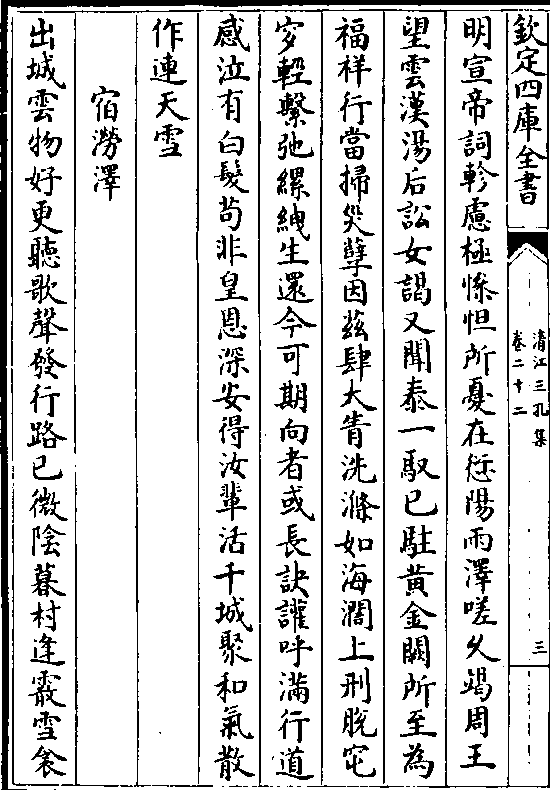 欽定四庫全書
清江三孔集
卷二十二
三
明宣帝詞軫慮極慘怛所憂在愆陽雨澤嗟久竭周王
望雲漢湯后訟女謁又聞泰一馭已駐黄金闕所至為
福祥行當掃災孽因兹肆大眚洗滌如海濶上刑脱窀
穸輕繫弛縲絏生還今可期向者或長訣讙呼滿行道
感泣有白髮苟非皇恩深安得汝軰活千城聚和氣散
作連天雪
宿澇澤
出城雲物好更聽歌聲發行路已微陰暮村逢霰雪衾